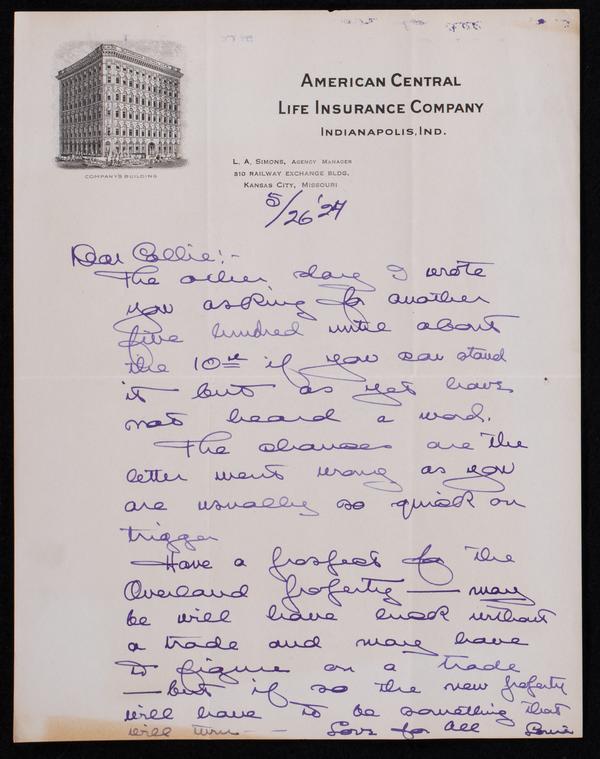 AMERICAN CENTRAL
LIFE INSURANCE COMPANY
INDIANAPOLIS, IND.
COMPANY'S BUILDING
L. A. SIMONS, AGENCY MANAGER
810 RAILWAY EXCHANGE BLDG.
KANSAS CITY, MISSOURI
5/26 '24
Dear Collie:-
The other day I wrote
you asking for another
five hundred until about
the 10th if you can stand
it but as yet have
not heard a word.
The chances are the
letter went wrong as you
are usually so quick on
trigger
Have a prospect for the
Overland property — may
be will have luck without
a trade and may have
to figure on a trade
— but if so the new property
will have to be something that
will turn - - Love for All Louis